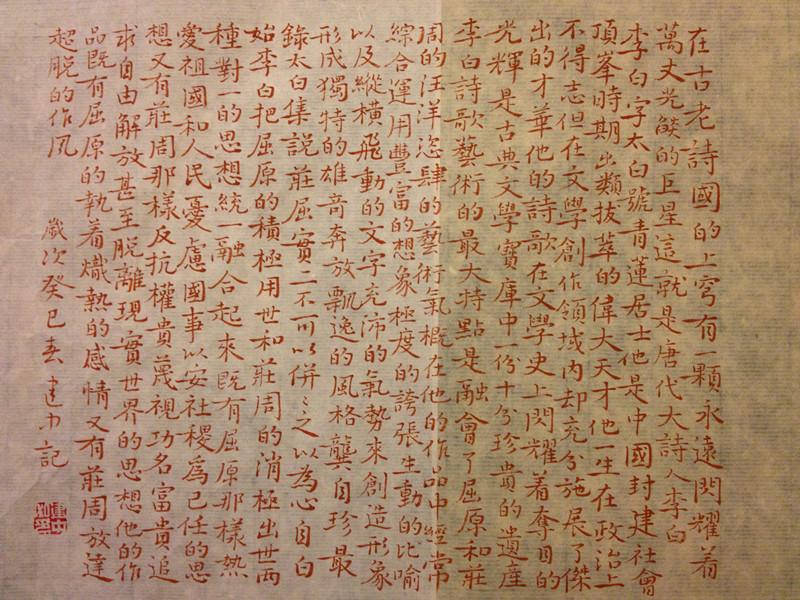 在古老詩國的上穹有一顆永遠閃耀着
萬丈光燄的巨星這就是唐代大詩人李白
李白字太白號青蓮居士他是中國封建社會
頂峯時期出類拔萃的偉大天才他一生在政治上
不得志但在文學創作領域內却充分施展了傑
出的才華他的詩歌在文學史上閃耀着奪目的
光輝是古典文學寶庫中一份十分珍貴的遺產
李白詩歌藝術的最大特點是融會了屈原和莊
周的汪洋恣肆的藝術氣概在他的作品中經常
綜合運用豐富的想象極度的誇張生動的比喻
以及縱橫飛動的文字充沛的氣勢來創造形象
形成獨特的雄奇奔放飄逸的風格龔自珍最
錄太白集説莊屈實二不可以併〻之以為心自白
始李白把屈原的積極用世和莊周的消極出世兩
種對一的思想統一融合起來既有屈原那樣熱
愛祖國和人民憂慮國事以安社稷爲己任的思
想又有莊周那樣反抗權貴蔑視功名富貴追
求自由解放甚至脱離現實世界的思想他的作
品既有屈原的執着熾熱的感情又有莊周放達
超脱的作风
歲次癸巳春建中記